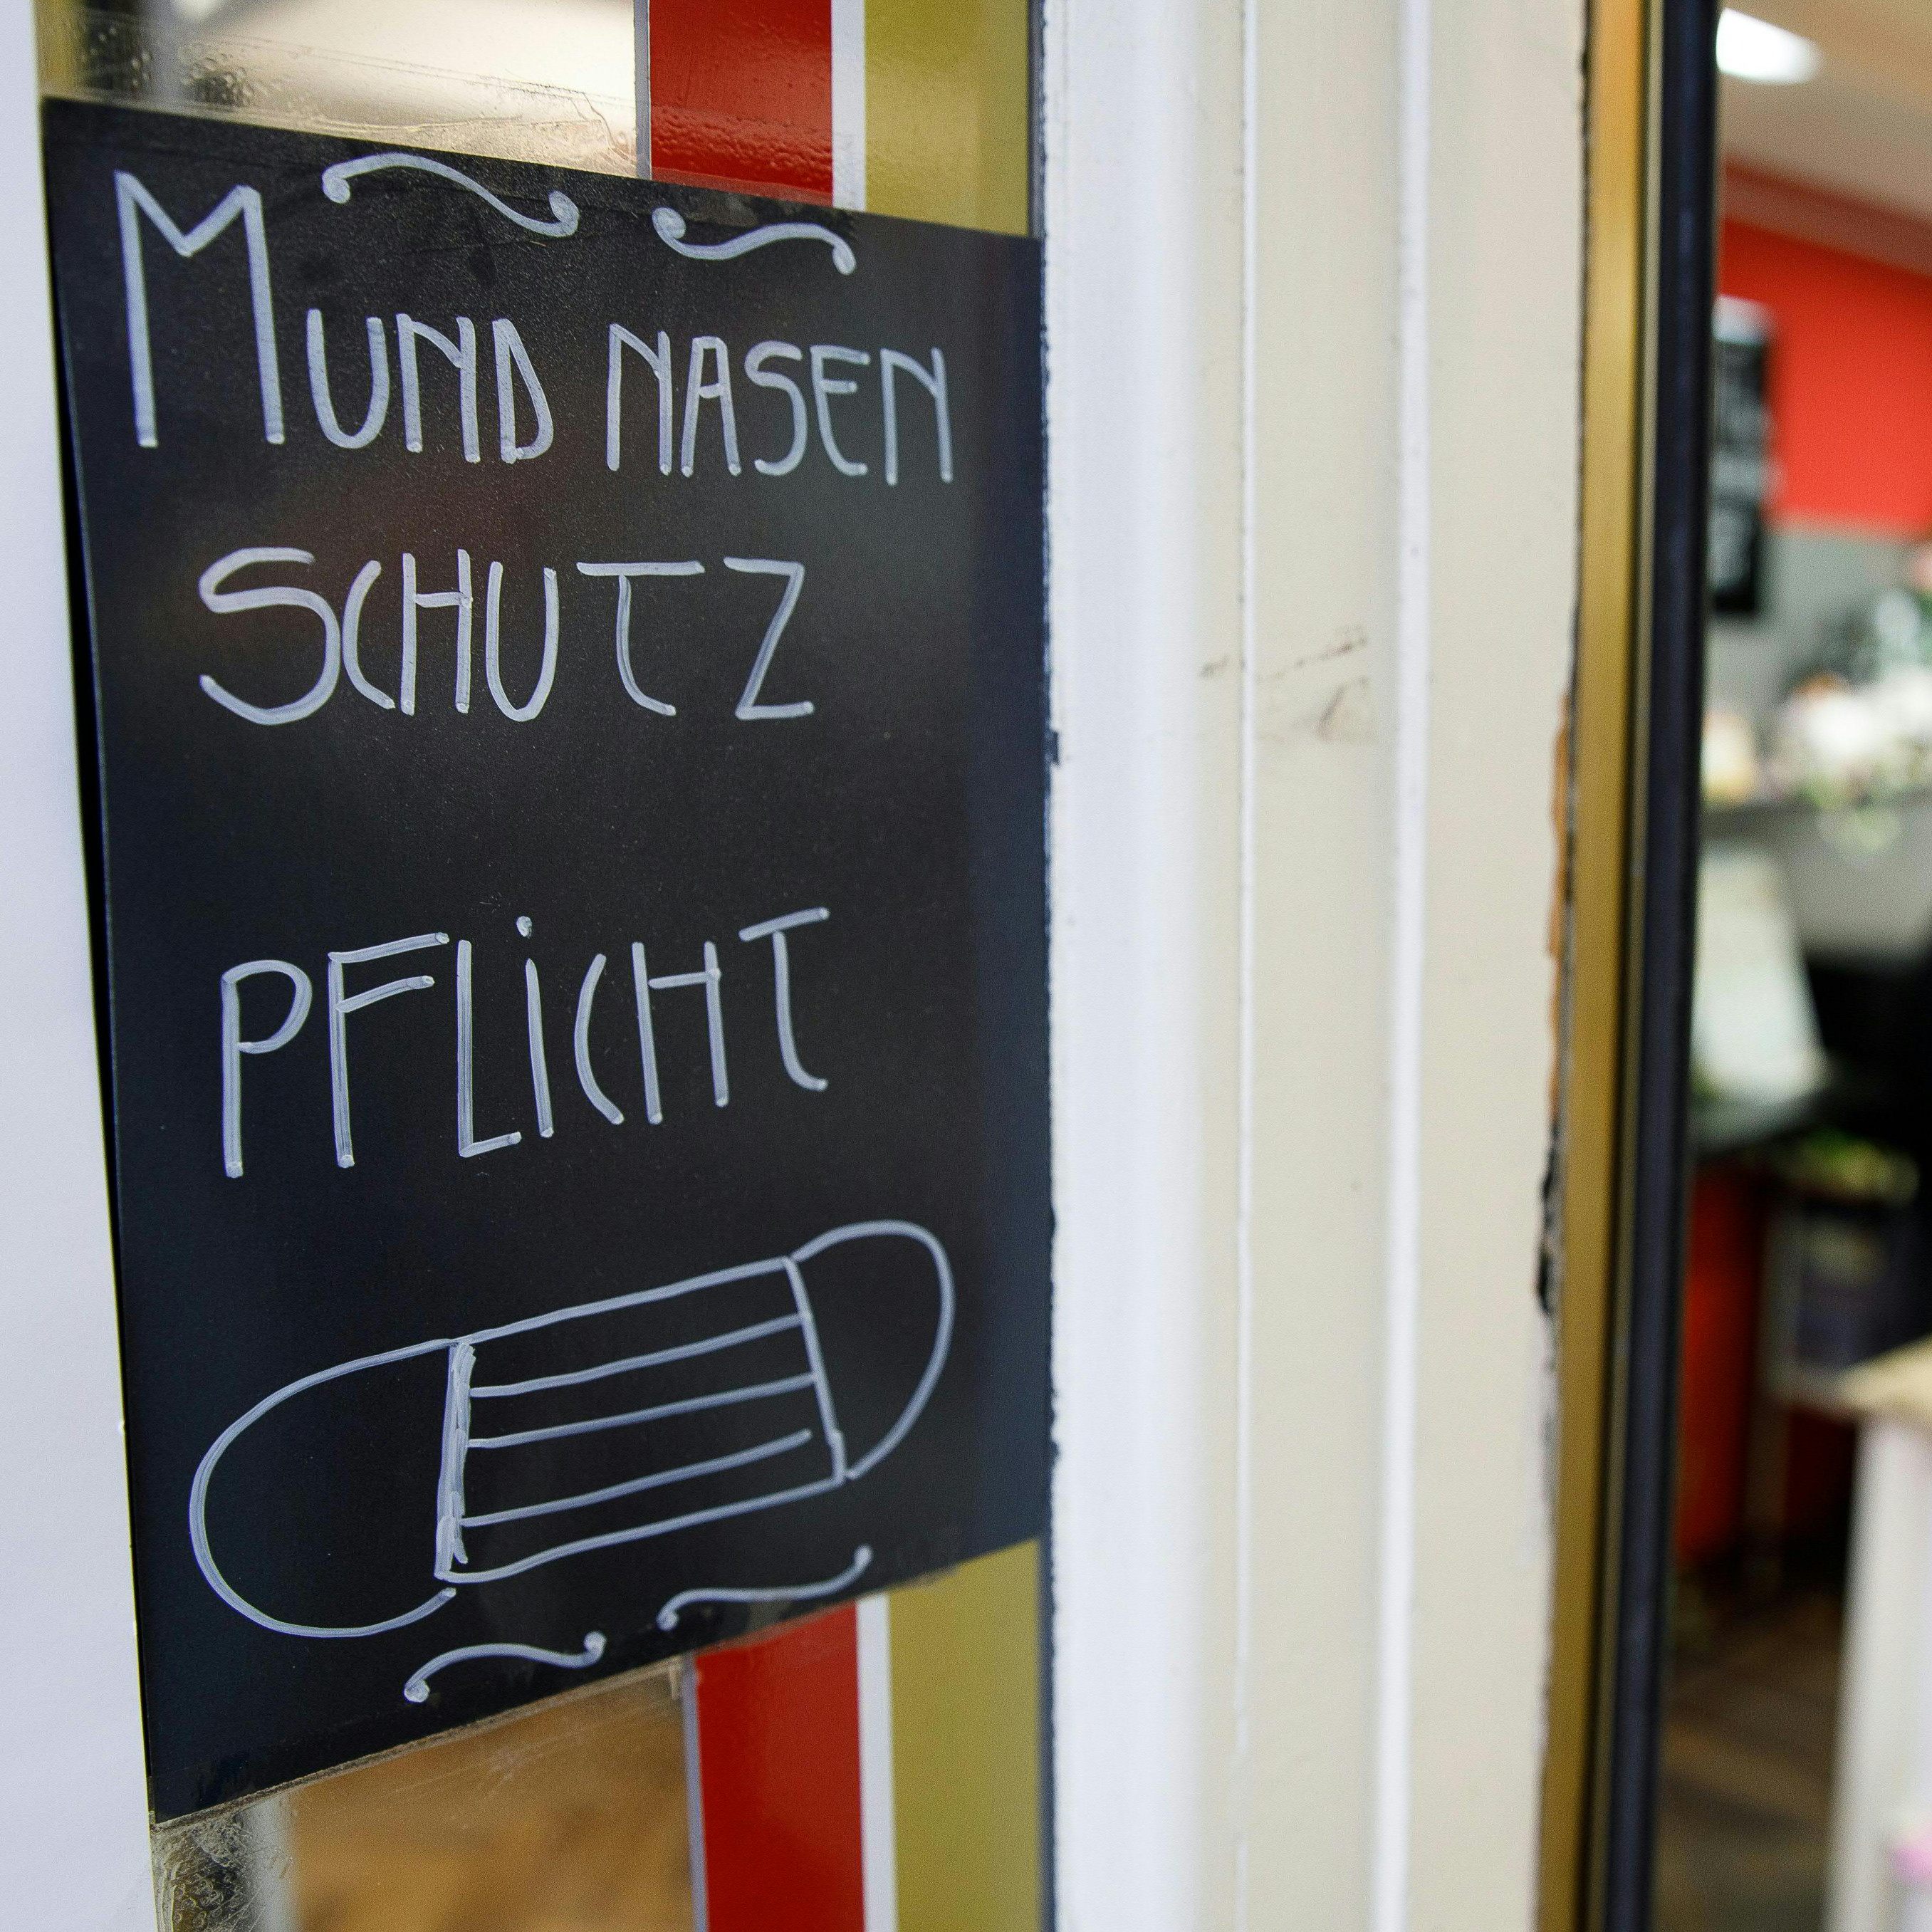 MUND NASEN
SCHUTZ
PFLiCHT